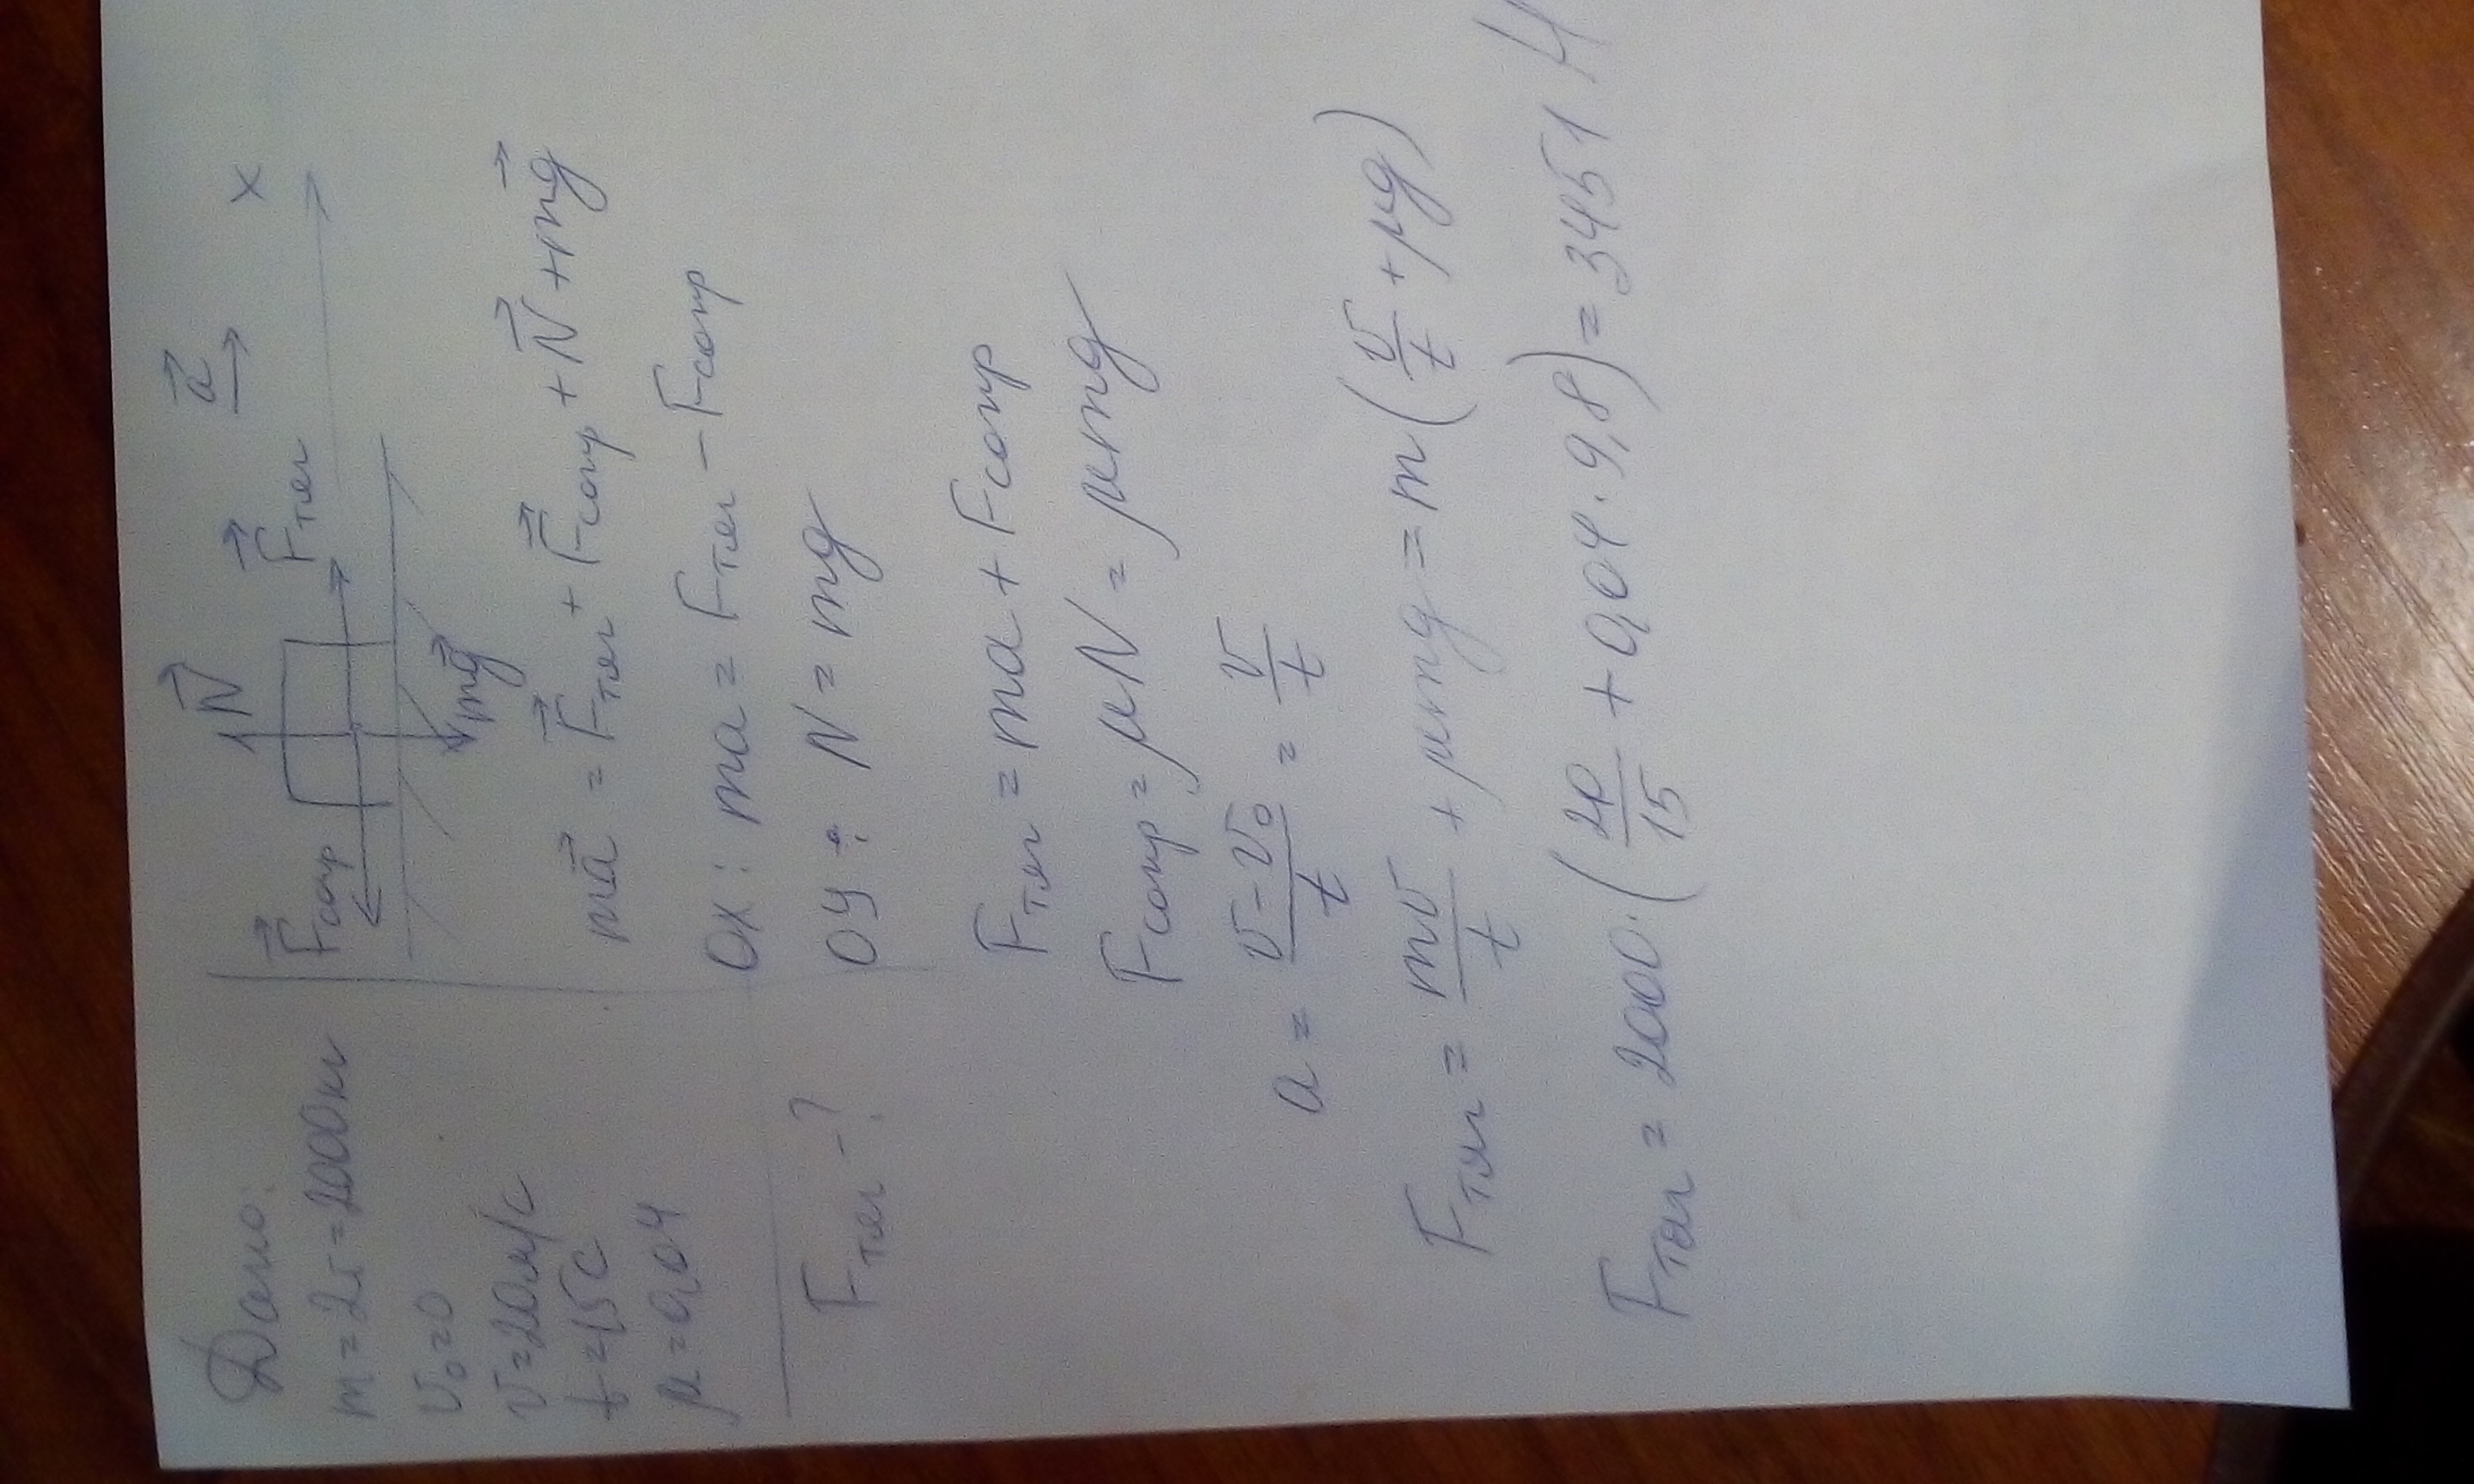 Дано:
m = 2т = 2000кг
v₀ = 0
v = 20м/с
t = 15с
μ = 0,04
Fтяг - ?
N⃗ a⃗ x
F⃗сопр F⃗тяг
mg⃗
ma⃗ = F⃗тяг + F⃗сопр + N⃗ + mg⃗
OX: ma = Fтяг - Fсопр
OY: N = mg
Fтяг = ma + Fсопр
Fсопр = μN = μmg
a = (v - v₀)/t = v/t
Fтяг = mv/t + μmg = m(v/t + μg)
Fтяг = 2000·(20/15 + 0,04·9,8) = 3451 Н